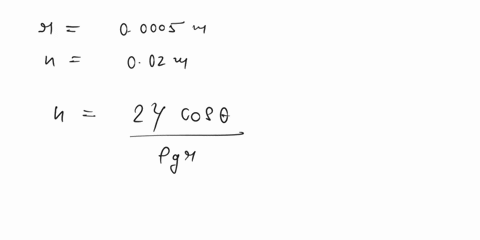 r = 0.0005 m
h = 0.02 m
h = 2γ cosθ
ρgr